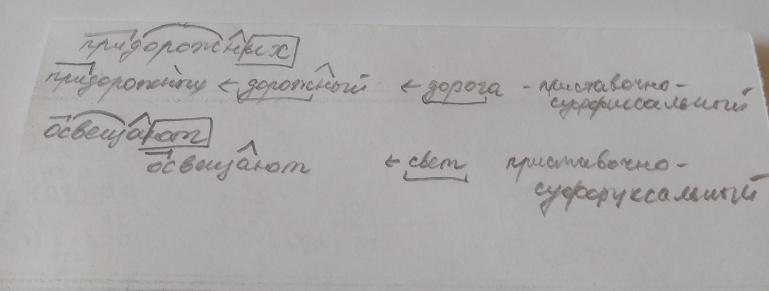 придорожных
придорожный ← дорожный ← дорога - приставочно-
суффиксальный
освещают
освещают ← свет приставочно-
суффиксальный